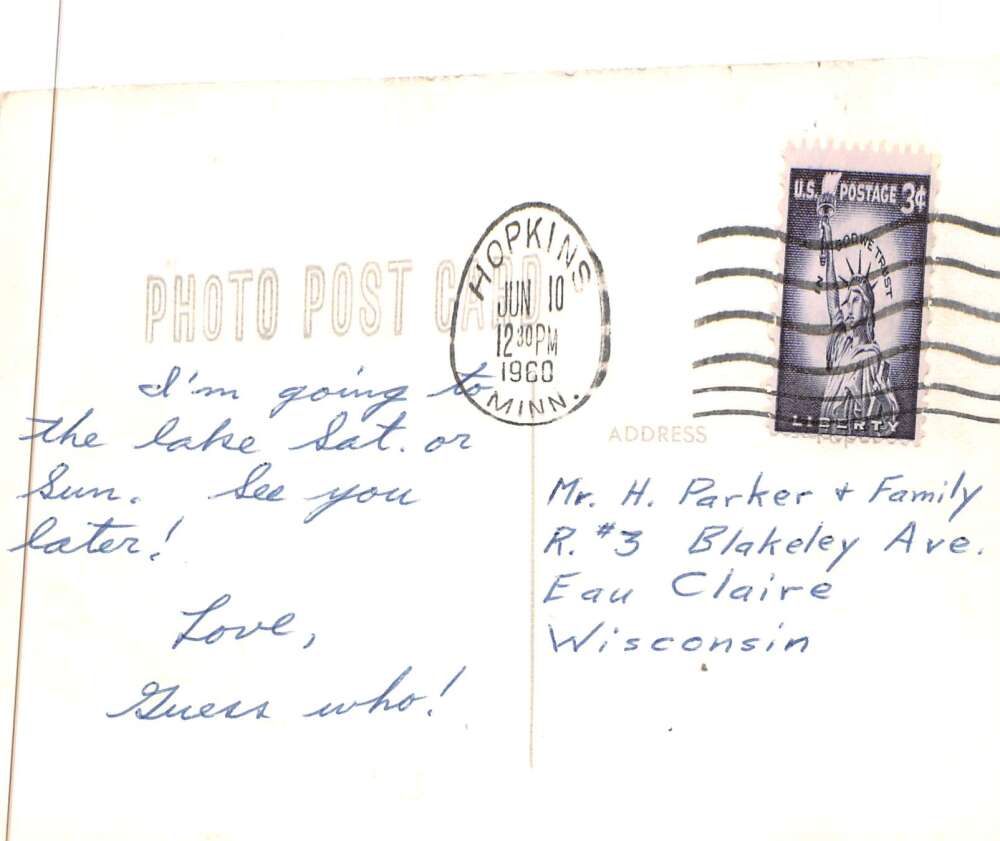 U.S. POSTAGE 3¢
IN GOD WE TRUST
LIBERTY
HOPKINS
JUN 10
12 30 PM
1960
MINN.
PHOTO POST CARD
I'm going to
the lake Sat. or
Sun. See you
later!
Love,
Guess who!
ADDRESS
Mr. H. Parker + Family
R. #3 Blakeley Ave.
Eau Claire
Wisconsin